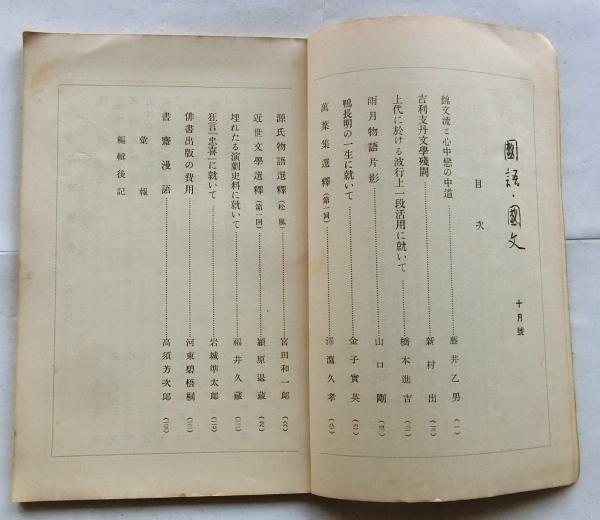 國語・國文
十月號
目次
錦文流と心中戀の中道 藤井乙男
吉利支丹文學殘闕 新村出
上代に於ける波行上一段活用に就いて 橋本進吉
雨月物語片影 山口剛
鴨長明の一生に就いて 金子實英
萬葉集選釋(第一囘) 澤瀉久孝
源氏物語選釋(松風) 宮田和一郎
近世文學選釋(第一囘) 潁原退藏
埋れたる演劇史料に就いて 福井久藏
狂言「忠喜」に就いて 岩城準太郎
俳書出版の費用 河東碧梧桐
書齋漫語 高須芳次郎
彙報
編輯後記